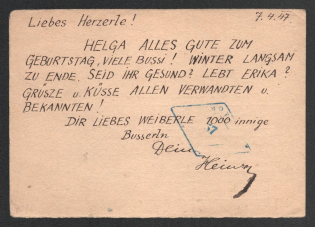 Liebes Herzerle! 7.4.47
HELGA ALLES GUTE ZUM
GEBURTSTAG, VIELE BUSSI! WINTER LANGSAM
ZU ENDE. SEID IHR GESUND? LEBT ERIKA?
GRÜSZE u. KÜSSE ALLEN VERWANDTEN u.
BEKANNTEN!
DIR LIEBES WEIBERLE 1000 innige
Busserln
Dein
Heinz